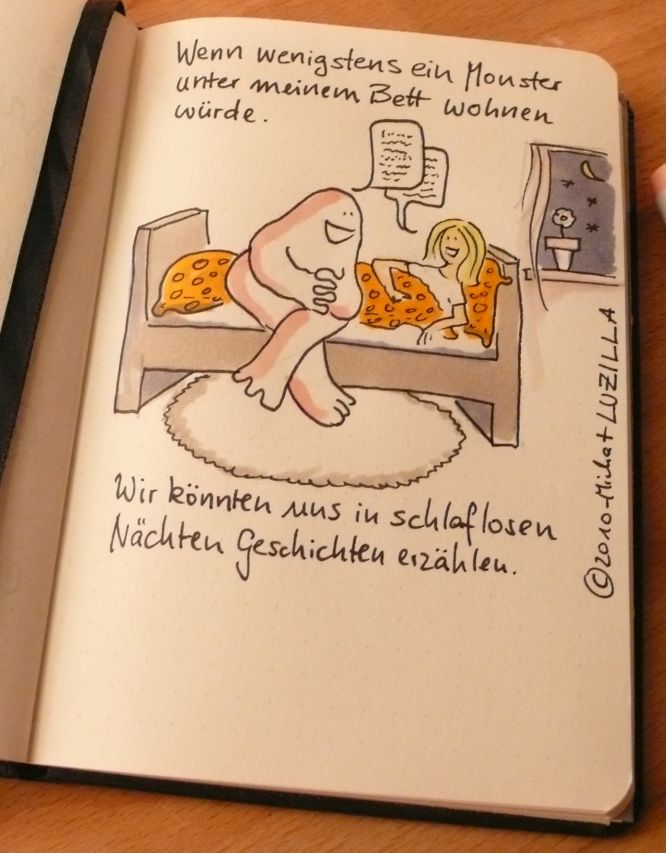 Wenn wenigstens ein Monster
unter meinem Bett wohnen
würde.
Wir könnten uns in schlaflosen
Nächten Geschichten erzählen.
©2010-Michat LUZILLA